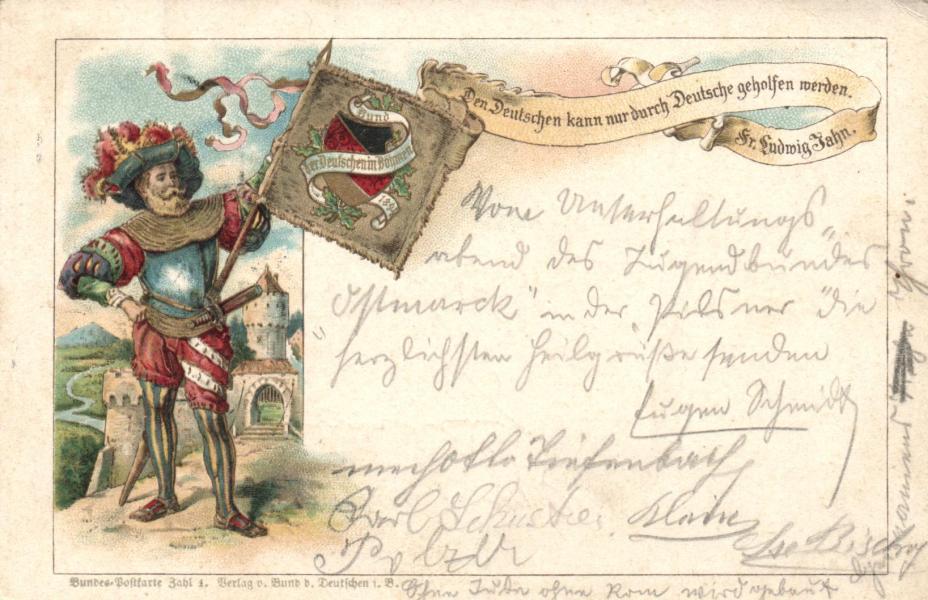 Bund
der Deutschen in Böhmen
189
Den Deutschen kann nur durch Deutsche geholfen werden.
Fr. Ludwig Jahn.
Vom Unterhaltungs„
abend des Jugendbundes
„Ostmarck" in der Pilsner "die
herzlichsten Heilgrüße senden
Eugen Schmidt
Otto Tiefenbach
Karl Schuster. Klein
Ohne Juda ohne Rom wird gebaut
Germaniens Dom.
Bundes-Postkarte Zahl 1. Verlag v. Bund d. Deutschen i. B.